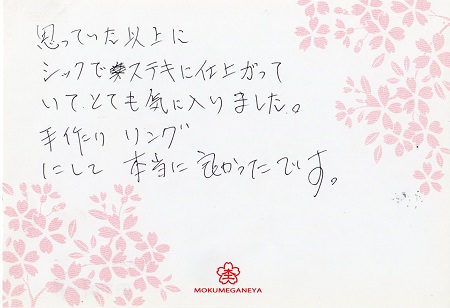 思っていた以上に
シックでステキに仕上がって
いて、とても気に入りました。
手作り リング
にして 本当に良かったです。
MOKUMEGANEYA